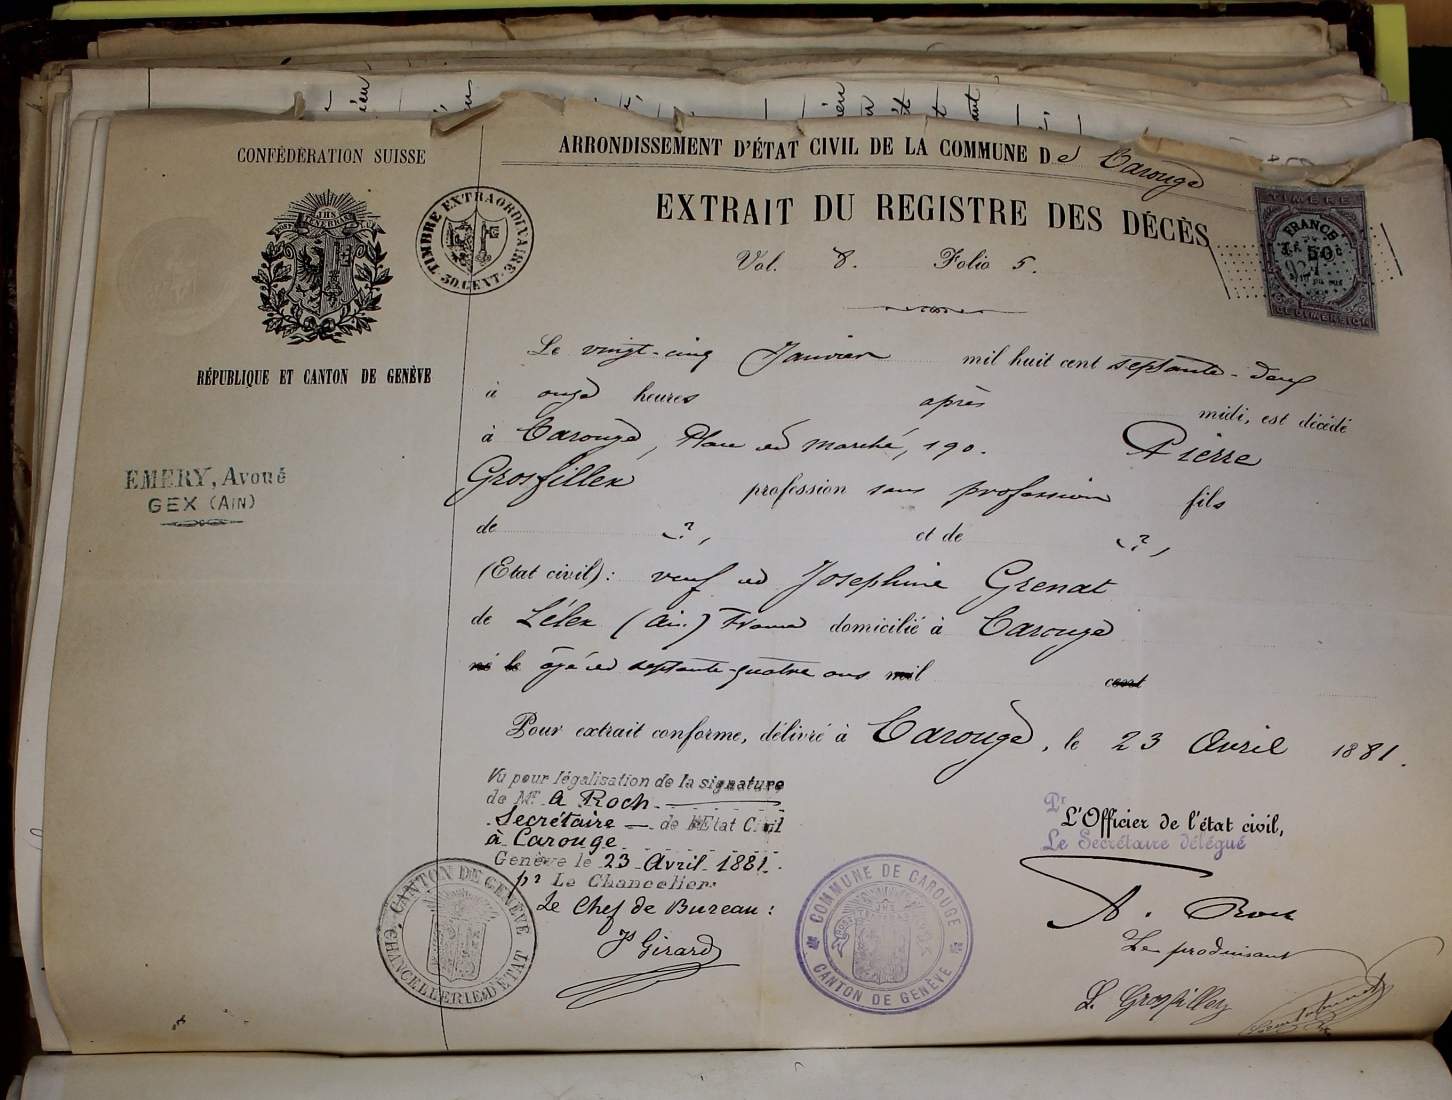 CONFÉDÉRATION SUISSE
RÉPUBLIQUE ET CANTON DE GENÈVE
TIMBRE EXTRAORDINAIRE
50 CENT.
EMERY, Avoué
GEX (AIN)
ARRONDISSEMENT D'ÉTAT CIVIL DE LA COMMUNE De Carouge
EXTRAIT DU REGISTRE DES DÉCÈS
Vol. 8. Folio 5.
TIMBRE
FRANCE
50
DE DIMENSION
Le vingt-cinq Janvier mil huit cent septante-deux
à onze heures après midi, est décédé
à Carouge, Place du marché, 190. Pierre
Grosfillex profession sans profession fils
de ?, et de ?,
(Etat civil): veuf de Josephine Grenat
de Lélex (Ain) France domicilié à Carouge
né le âgé de septante-quatre ans mil cent
Pour extrait conforme, délivré à Carouge, le 23 Avril 1881.
Vu pour légalisation de la signature
de Mr. A Roch
Secrétaire de l'Etat Civil
à Carouge
Genève le 23 Avril 1881.
pr Le Chancelier:
Le Chef de Bureau:
Js Girard
CANTON DE GENÈVE
CHANCELLERIE D'ÉTAT
COMMUNE DE CAROUGE
CANTON DE GENÈVE
Pr L'Officier de l'état civil,
Le Secrétaire délégué
A. Roch
Le produisant
L. Grosfillex